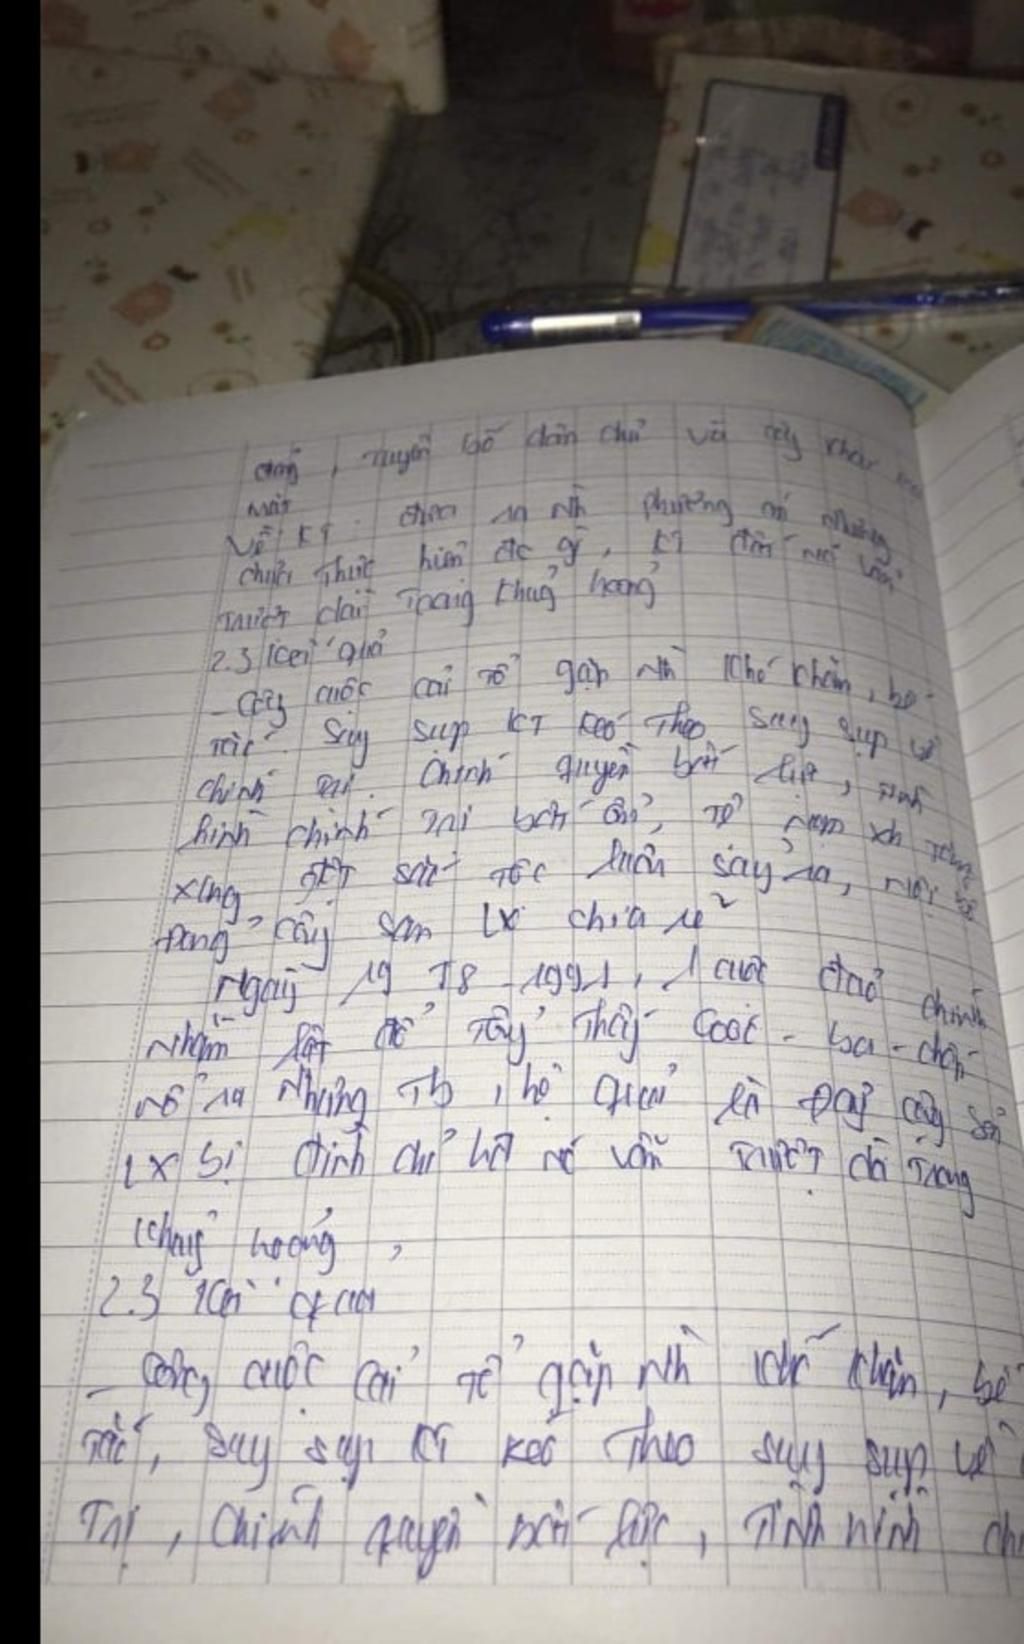 , tuyên bố dân chủ và
mặt
Về KT: đưa ra nh phương án nhưng
chưa thực hiện đc gì, KT đất nc vẫn
trượt dài trong khủng hoảng
2.3 Kết quả
- Công cuộc cải tổ gặp nh khó khăn, bế
tắc. Suy sụp KT kéo theo suy sụp về
chính trị. Chính quyền bất lực, tình
hình chính trị bất ổn, tệ nạn xh tăng
xung đột sắc tộc luôn sảy ra, nội bộ
Đảng cộng sản LX chia rẽ
Ngày 19 T8 - 1991, 1 cuộc đảo chính
nhằm lật đổ
nổ ra nhưng Tb, hệ quả là Đảng cộng sản
LX bị đình chỉ hđ nc vẫn trượt dài trong
khủng hoảng,
2.3 Kết quả
- Công cuộc cải tổ gặp nh khó khăn, bế
tắc, suy sụp KT kéo theo suy sụp về
Trị, Chính quyền bất lực, Tình hình